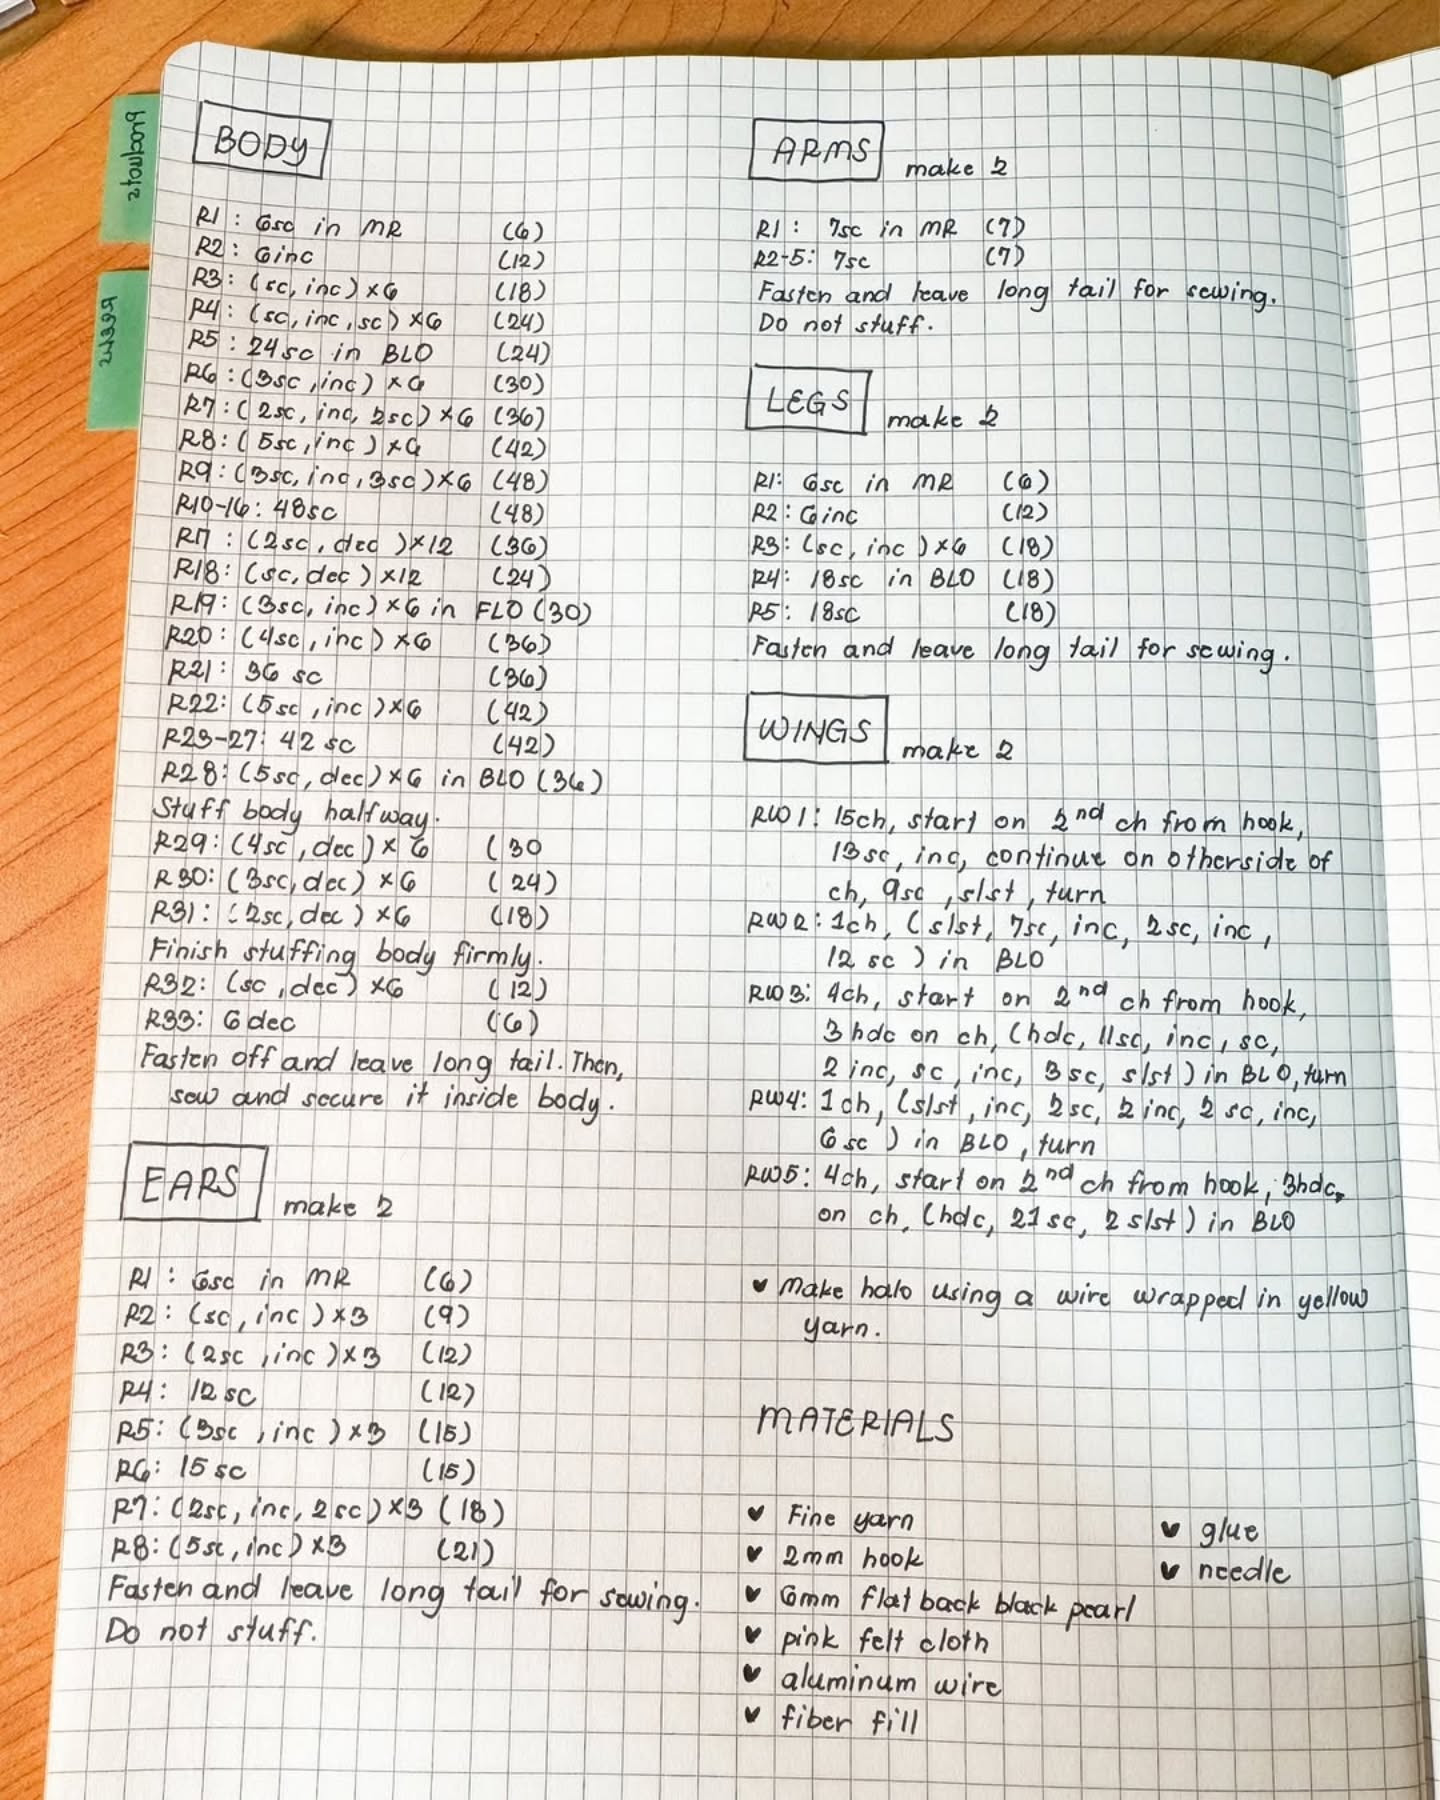 BODY
R1 : 6sc in MR (6)
R2: 6inc (12)
R3: (sc, inc) x6 (18)
R4: (sc, inc, sc) x6 (24)
R5 : 24sc in BLO (24)
R6 : (3sc, inc) x6 (30)
R7 : (2sc, inc, 2sc) x6 (36)
R8: (5sc, inc) x6 (42)
R9 : (3sc, inc, 3sc) x6 (48)
R10-16: 48sc (48)
R17 : (2sc, dec) x12 (36)
R18: (sc, dec) x12 (24)
R19: (3sc, inc) x6 in FLO (30)
R20: (4sc, inc) x6 (36)
R21: 36 sc (36)
R22: (5sc, inc) x6 (42)
R23-27: 42 sc (42)
R28: (5sc, dec) x6 in BLO (36)
Stuff body halfway.
R29: (4sc, dec) x 6 (30
R30: (3sc, dec) x6 (24)
R31: (2sc, dec) x6 (18)
Finish stuffing body firmly.
R32: (sc, dec) x6 (12)
R33: 6 dec (6)
Fasten off and leave long tail. Then,
sew and secure it inside body.
EARS make 2
R1 : 6sc in MR (6)
R2 : (sc, inc) x3 (9)
R3 : (2sc, inc) x3 (12)
R4: 12 sc (12)
R5: (3sc, inc) x3 (15)
R6: 15 sc (15)
R7: (2sc, inc, 2sc) x3 (18)
R8: (5sc, inc) x3 (21)
Fasten and leave long tail for sewing.
Do not stuff.
ARMS make 2
R1 : 7sc in MR (7)
R2-5: 7sc (7)
Fasten and leave long tail for sewing.
Do not stuff.
LEGS make 2
R1: 6sc in MR (6)
R2 : 6inc (12)
R3: (sc, inc) x6 (18)
R4: 18sc in BLO (18)
R5: 18sc (18)
Fasten and leave long tail for sewing.
WINGS make 2
RW1: 15ch, start on 2nd ch from hook,
13sc, inc, continue on otherside of
ch, 9sc, slst, turn
RW2: 1ch, (slst, 7sc, inc, 2sc, inc,
12 sc) in BLO
RW3: 4ch, start on 2nd ch from hook,
3 hdc on ch, (hdc, 11sc, inc, sc,
2 inc, sc, inc, 3sc, slst) in BLO, turn
RW4: 1ch, (slst, inc, 2sc, 2 inc, 2 sc, inc,
6sc) in BLO, turn
RW5: 4ch, start on 2nd ch from hook, 3hdc,
on ch, (hdc, 21sc, 2 slst) in BLO
Make halo using a wire wrapped in yellow
yarn.
MATERIALS
Fine yarn
2mm hook
6mm flat back black pearl
pink felt cloth
aluminum wire
fiber fill
glue
needle